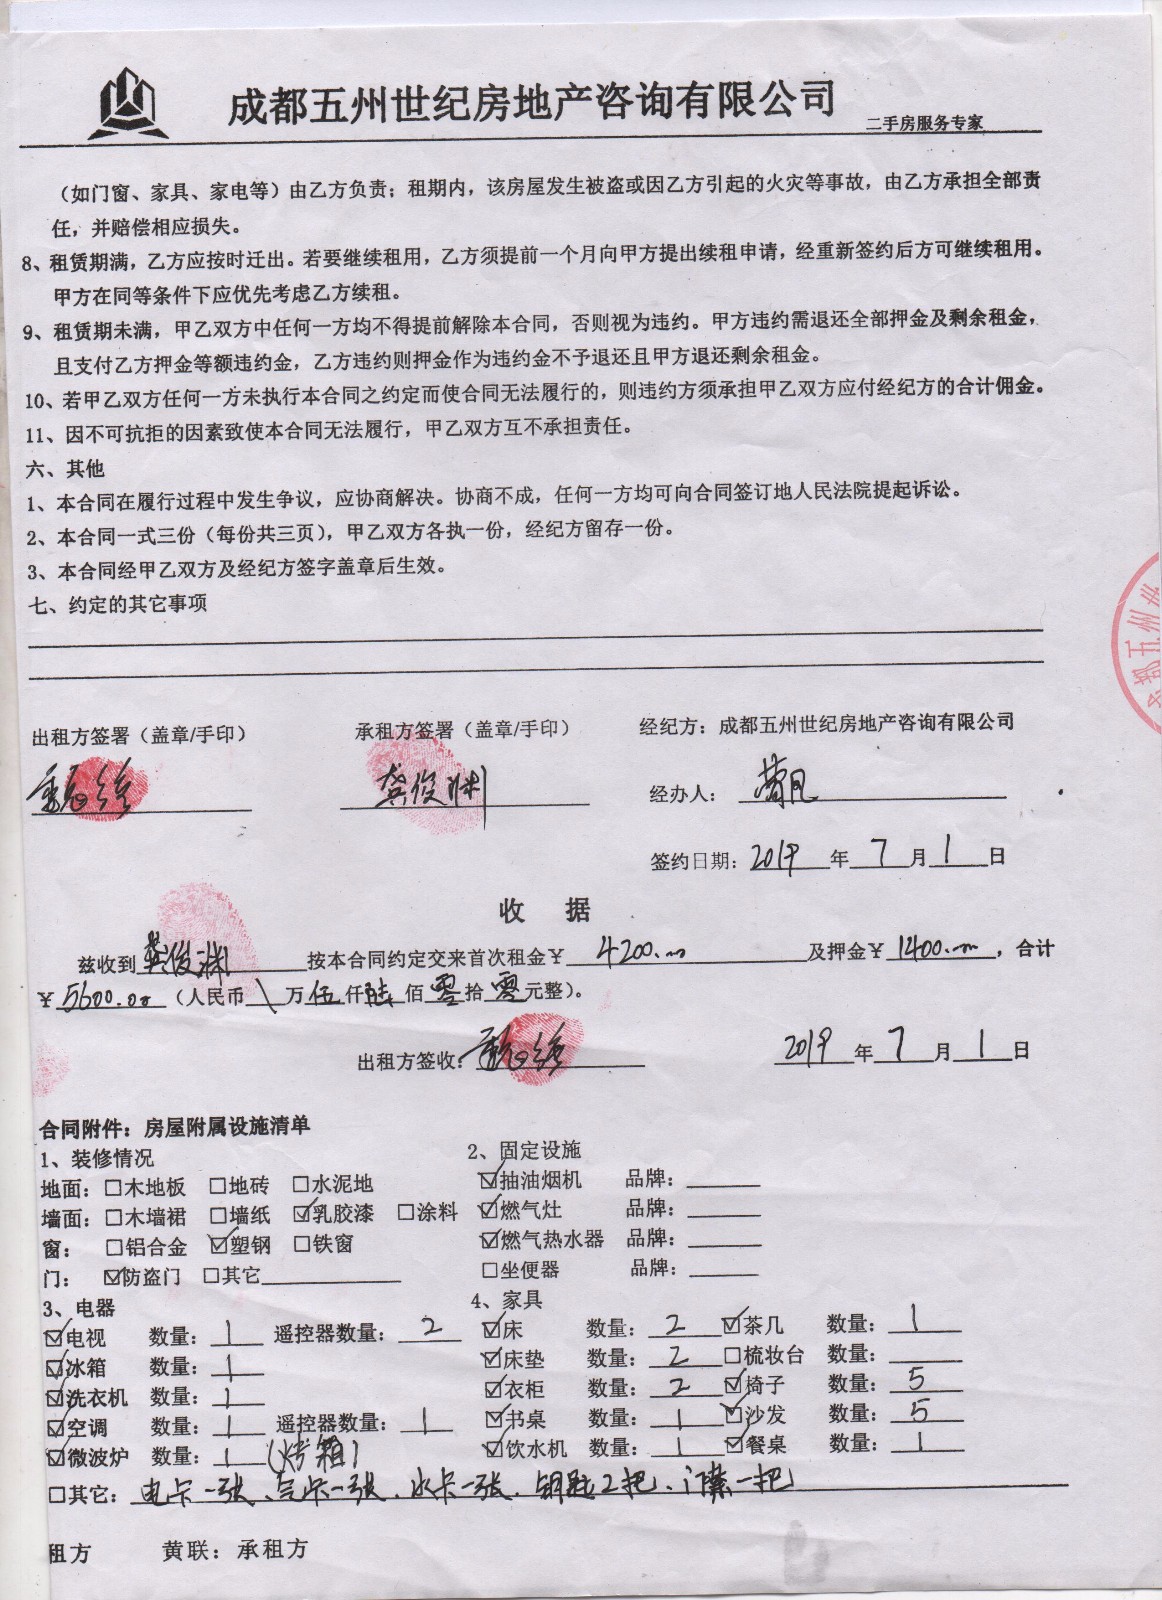 成都五州世纪房地产咨询有限公司
二手房服务专家
（如门窗、家具、家电等）由乙方负责；租期内，该房屋发生被盗或因乙方引起的火灾等事故，由乙方承担全部责
任，并赔偿相应损失。
8、租赁期满，乙方应按时迁出。若要继续租用，乙方须提前一个月向甲方提出续租申请，经重新签约后方可继续租用。
甲方在同等条件下应优先考虑乙方续租。
9、租赁期未满，甲乙双方中任何一方均不得提前解除本合同，否则视为违约。甲方违约需退还全部押金及剩余租金，
且支付乙方押金等额违约金，乙方违约则押金作为违约金不予退还且甲方退还剩余租金。
10、若甲乙双方任何一方未执行本合同之约定而使合同无法履行的，则违约方须承担甲乙双方应付经纪方的合计佣金。
11、因不可抗拒的因素致使本合同无法履行，甲乙双方互不承担责任。
六、其他
1、本合同在履行过程中发生争议，应协商解决。协商不成，任何一方均可向合同签订地人民法院提起诉讼。
2、本合同一式三份（每份共三页），甲乙双方各执一份，经纪方留存一份。
3、本合同经甲乙双方及经纪方签字盖章后生效。
七、约定的其它事项
都五州世
出租方签署（盖章/手印） 承租方签署（盖章/手印） 经纪方：成都五州世纪房地产咨询有限公司
龚俊渊 经办人：
签约日期：2019年7月1日
收 据
兹收到龚俊渊按本合同约定交来首次租金￥4200.00及押金￥1400.00，合计
￥5600.00（人民币\万伍仟陆佰零拾零元整）。
出租方签收： 2019年7月1日
合同附件：房屋附属设施清单
1、装修情况 2、固定设施
地面：□木地板 □地砖 □水泥地 ☑抽油烟机 品牌：
墙面：□木墙裙 □墙纸 ☑乳胶漆 □涂料 ☑燃气灶 品牌：
窗： □铝合金 ☑塑钢 □铁窗 ☑燃气热水器 品牌：
门： ☑防盗门 □其它 □坐便器 品牌：
3、电器 4、家具
☑电视 数量：1 遥控器数量：2 ☑床 数量：2 ☑茶几 数量：1
☑冰箱 数量：1 ☑床垫 数量：2 □梳妆台 数量：
☑洗衣机 数量：1 ☑衣柜 数量：2 ☑椅子 数量：5
☑空调 数量：1 遥控器数量：1 ☑书桌 数量：1 ☑沙发 数量：5
☑微波炉 数量：1（烤箱） ☑饮水机 数量：1 ☑餐桌 数量：1
□其它：电卡一张、气卡一张、水卡一张、钥匙2把、门禁一把
租方 黄联：承租方